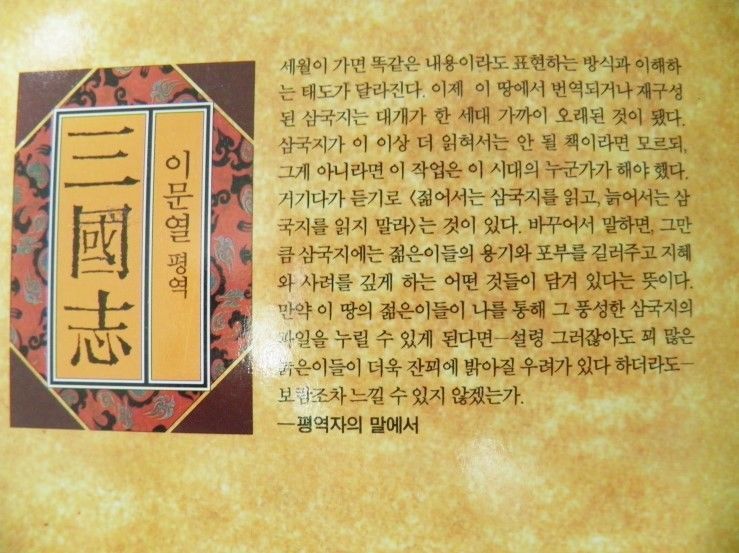 三國志
이문열 평역
세월이 가면 똑같은 내용이라도 표현하는 방식과 이해하
는 태도가 달라진다. 이제 이 땅에서 번역되거나 재구성
된 삼국지는 대개가 한 세대 가까이 오래된 것이 됐다.
삼국지가 이 이상 더 읽혀서는 안 될 책이라면 모르되,
그게 아니라면 이 작업은 이 시대의 누군가가 해야 했다.
거기다가 듣기로 〈젊어서는 삼국지를 읽고, 늙어서는 삼
국지를 읽지 말라〉는 것이 있다. 바꾸어서 말하면, 그만
큼 삼국지에는 젊은이들의 용기와 포부를 길러주고 지혜
와 사려를 깊게 하는 어떤 것들이 담겨 있다는 뜻이다.
만약 이 땅의 젊은이들이 나를 통해 그 풍성한 삼국지의
과일을 누릴 수 있게 된다면—설령 그러잖아도 꾀 많은
늙은이들이 더욱 잔꾀에 밝아질 우려가 있다 하더라도—
보람조차 느낄 수 있지 않겠는가.
—평역자의 말에서